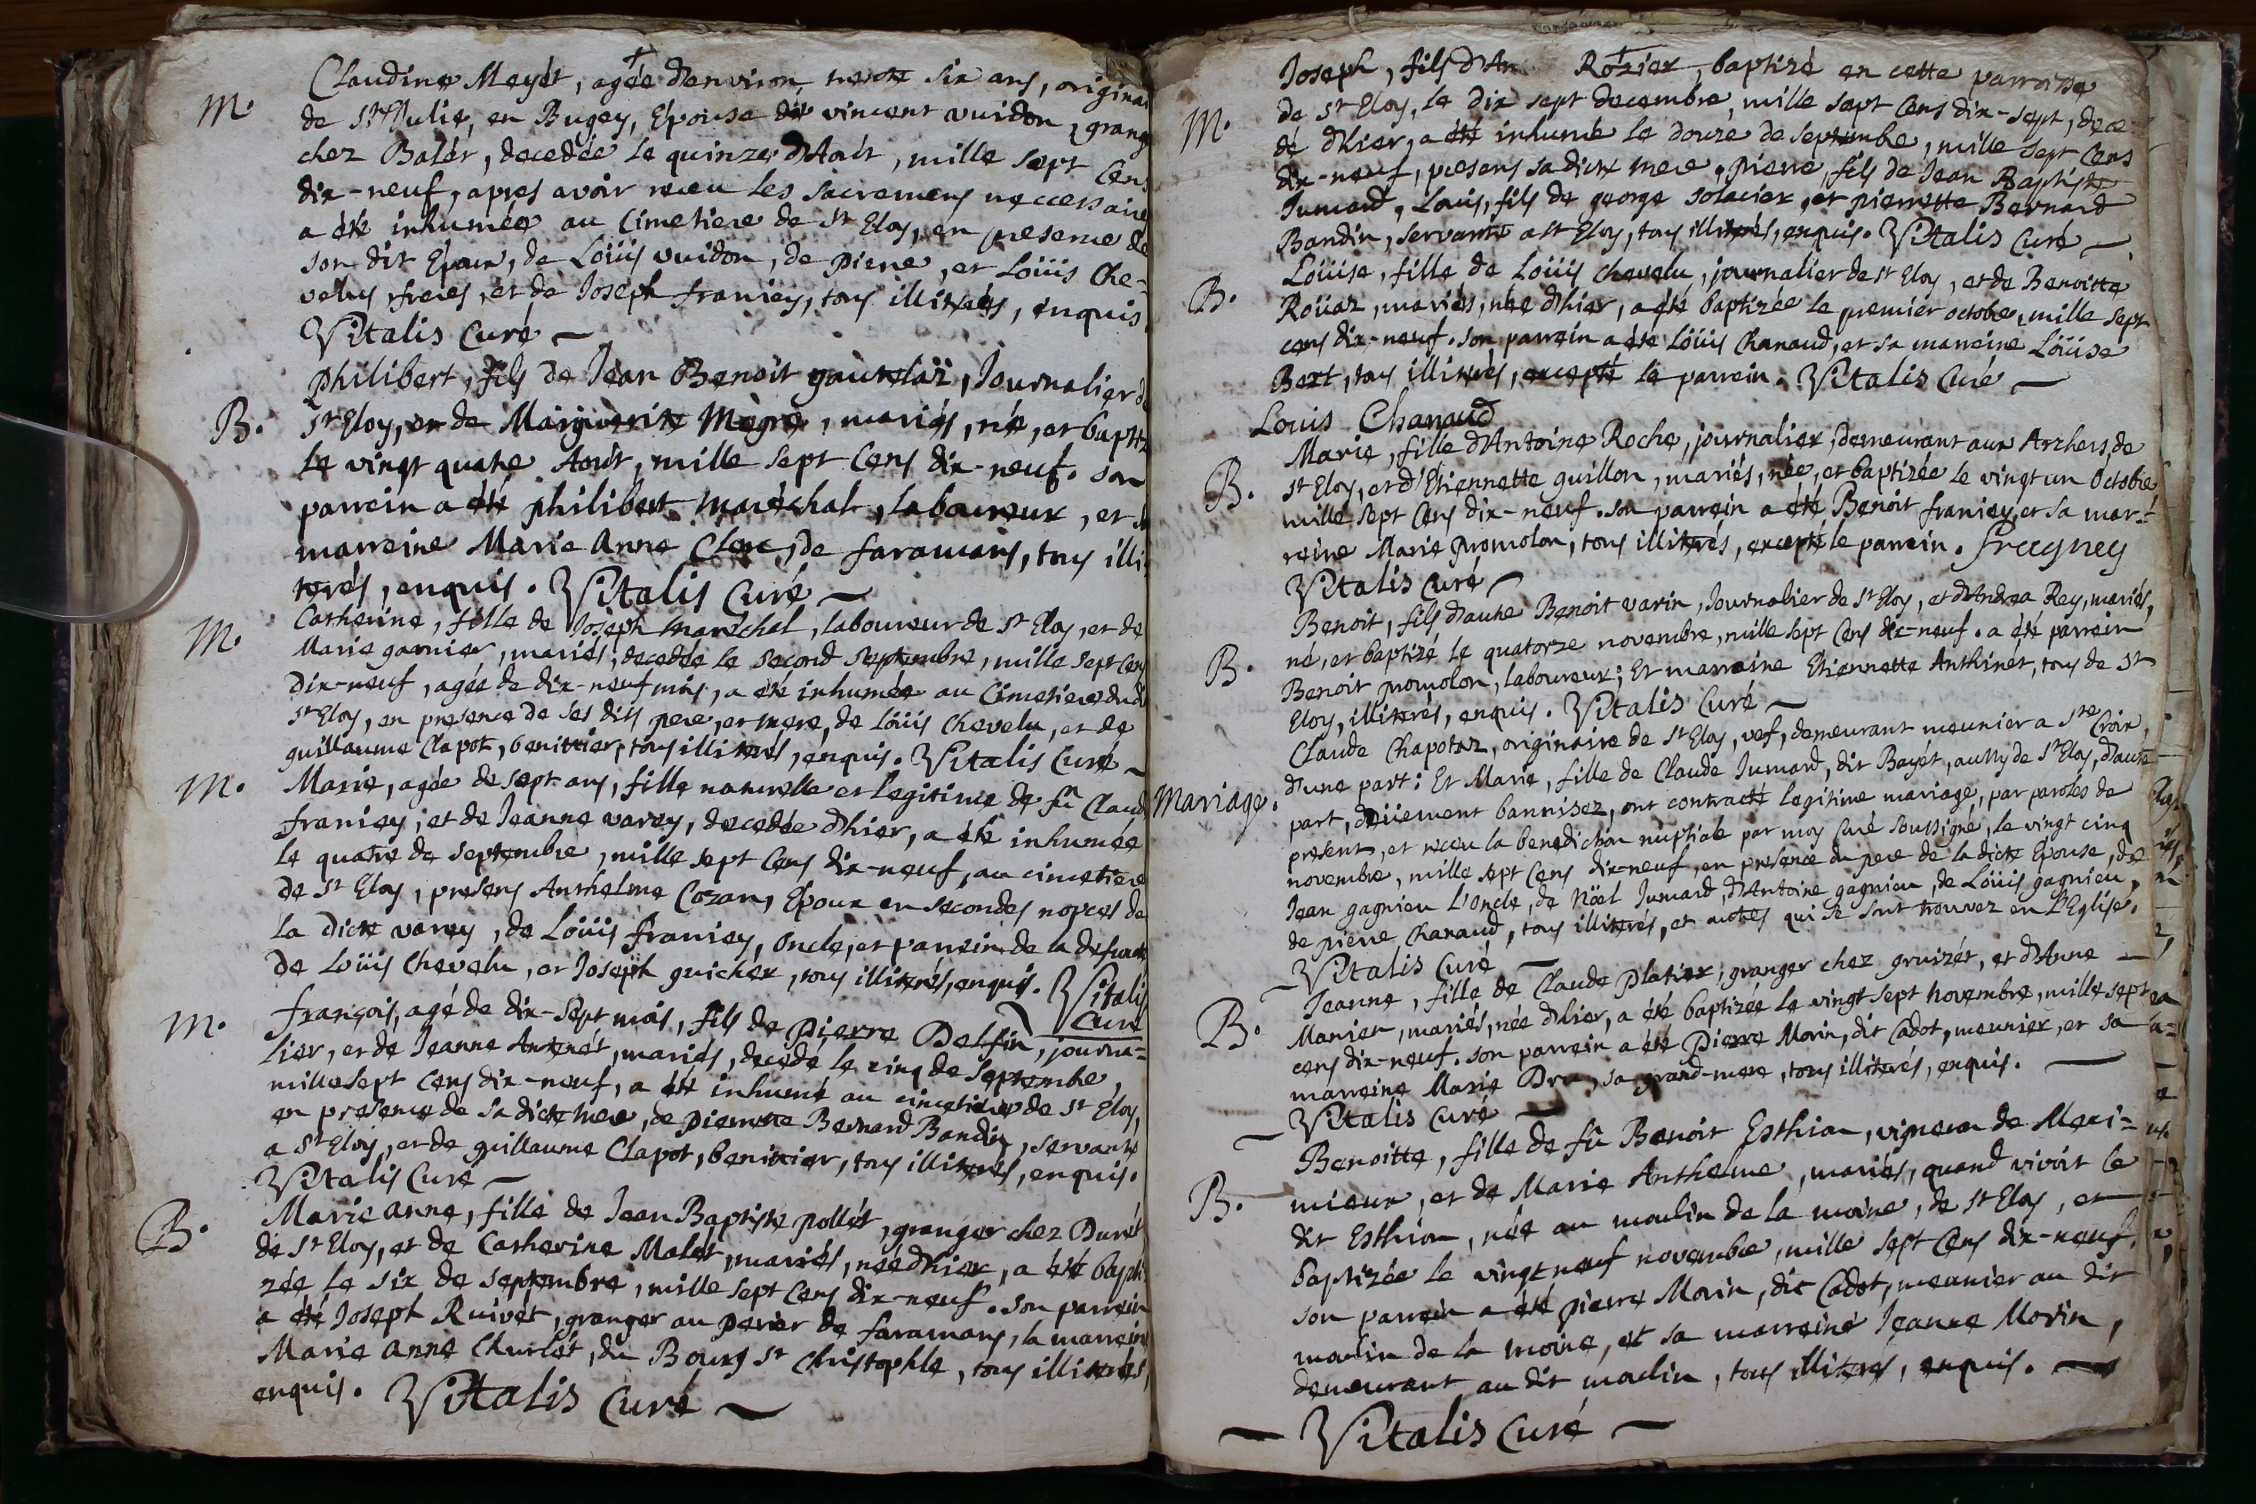 Claudine Meyét, agée d'environ trente six ans, originai
M.
de Ste Julie, en Bugey, Epouse de vincent vuidon, grang
chez Balét, decedée le quinze d'Aoút, mille sept Cens
dix-neuf, apres avoir receu les sacremens neccessaire
a été inhumée au Cimetiere de st Eloy, en presence de
son dit Epoux, de Loüis vuidon, de pierre, et Loüis Che-
velus, freres, et de Joseph franiey, tous illiterés, enquis.
Vitalis Curé
philibert, fils de Jean Benoit gautelaz, Journalier d
B.
St Eloy, et de Marguerite Megre, mariés, né, et baptiz
le vingt quatre Aoút, mille sept Cens dix-neuf. son
parrein a été philibert maréchal, laboureur, et s
marreine Marie Anne Clere, de faramans, tous illi-
terés, enquis. Vitalis Curé
Catherine, fille de Joseph maréchal, laboureur de st Eloy, et de
M.
Marie garnier, mariés, decedée le second septembre, mille sept Cens
Dix-neuf, agée de dix-neuf mois, a été inhumée au Cimetiere dudi
st Eloy, en presence de ses dits pere, et mere, de Loüis Chevelu, et de
guillaume Clapot, benittier, tous illiterés, enquis. Vitalis Curé
M.
Marie, agée de sept ans, fille naturelle et legitime de fû Claud
franiey; et de Jeanne varey, decedée d'hier, a été inhumée
le quatre de septembre, mille sept Cens dix-neuf, au cimetiere
de st Eloy, presens Anthelme Cozan, Epoux en secondes nopces de
la dicte varey, de Loüis franiey, oncle, et parrein de la defuncte
de Loüis Chevelu, et Joseph guicher, tous illiterés, enquis. Vitalis
Curé
M.
françois, agé de dix-sept mois, fils de Pierre Delfin, journa=
lier, et de Jeanne Antenét, mariés, decede le cinq de septembre,
mille sept Cens dix-neuf, a été inhumé au cimetiere de st Eloy,
en presence de sa dicte mere, de Pierrette Bernard Bandin, servante
a st Eloy, et de guillaume Clapot, benitier, tous illiterés, enquis.
Vitalis Curé
Marie anne, fille de Jean Baptiste pollét, granger chez Durét
B.
de St Eloy, et de Catherine Malét, mariés, née d'hier, a été bapti
zée le six de septembre, mille sept Cens dix-neuf. son parrein
a été Joseph Ruivét, granger au perier de faramans, la marreine
Marie anne Churlét, du Bourg st Christophle, tous illiterés,
enquis. Vitalis Curé
Joseph, fils d'An Rozier, baptizé en cette parroisse
M.
de st Eloy, le dix sept decembre, mille sept Cens dix-sept, dece
dé d'hier, a été inhumé le douze de septembre, mille sept Cens
dix-neuf, presens sa dicte mere, pierre, fils de Jean Baptiste
Jumard, Louis, fils de george solacier, et pierrette Bernard
Bandin, servante a st Eloy, tous illiterés, enquis. Vitalis Curé
Loüise, fille de Loüis Chevelu, journalier de st Eloy, et de Benoitte
B.
Roüaz, mariés, née d'hier, a été baptizée le premier octobre, mille sept
cens dix-neuf. son parrein a été Loüis Chanaud, et sa marreine Loüise
Bert, tous illiterés, excepté le parrein. Vitalis Curé
Louis Chanaud
Marie, fille d'Antoine Roche, journalier, demeurant aux Archers, de
B.
st Eloy, et d'Etiennette guillon, mariés, née, et baptizée le vingt un Octobre
mille sept Cens dix-neuf. son parrein a été Benoit franiey, et sa mar-
reine Marie promolon, tous illiterés, excepté le parrein.
Vitalis Curé
Benoit, fils d'autre Benoit varin, Journalier de st Eloy, et d'Andrea Rey, mariés,
B.
né, et baptizé le quatorze novembre, mille sept Cens dix-neuf. a été parrein
Benoit promolon, laboureur; Et marreine Etiennette Anthinét, tous de st
Eloy, illiterés, enquis. Vitalis Curé
Claude Chapotaz, originaire de st Eloy, vef, demeurant meunier a Ste Croix,
Mariage.
d'une part: Et Marie, fille de Claude Jumard, dit Bayét, aussy de st Eloy, d'autre
part, düement bannisez, ont contracté legitime mariage, par paroles de
present, et receu la benediction nuptiale par moy Curé soussigné, le vingt cinq
novembre, mille sept Cens dix-neuf, en presence du pere de la dicte Epouse, de
Jean gagnieu L'oncle, de Nöel Jumard, d'Antoine gagnieu, de Loüis gagnieu,
de pierre Chanaud, tous illiterés, et autres qui se sont trouvez en L'Eglise.
Vitalis Curé
Jeanne, fille de Claude Platier, granger chez gruizét, et d'Anne
B.
Manier, mariés, née d'hier, a été baptizée le vingt sept novembre, mille sept
cens dix-neuf. son parrein a été Pierre Morin, dit Cadot, meunier, et sa
marreine Marie, sa grand-mere, tous illiterés, enquis.
Vitalis Curé
Benoitte, fille de fû Benoit Esthion, vigneron de Mexi=
B.
mieux, et de Marie Anthelme, mariés, quand vivoit le
dit Esthion, née au moulin de la moine, de st Eloy, et
baptizée le vingt neuf novembre, mille sept Cens dix-neuf.
son parrein a été pierre Morin, dit Cadot, meunier au dit
moulin de la moine, et sa marreine Jeanne Morin,
demeurant au dit moulin, tous illiterés, enquis.
Vitalis Curé